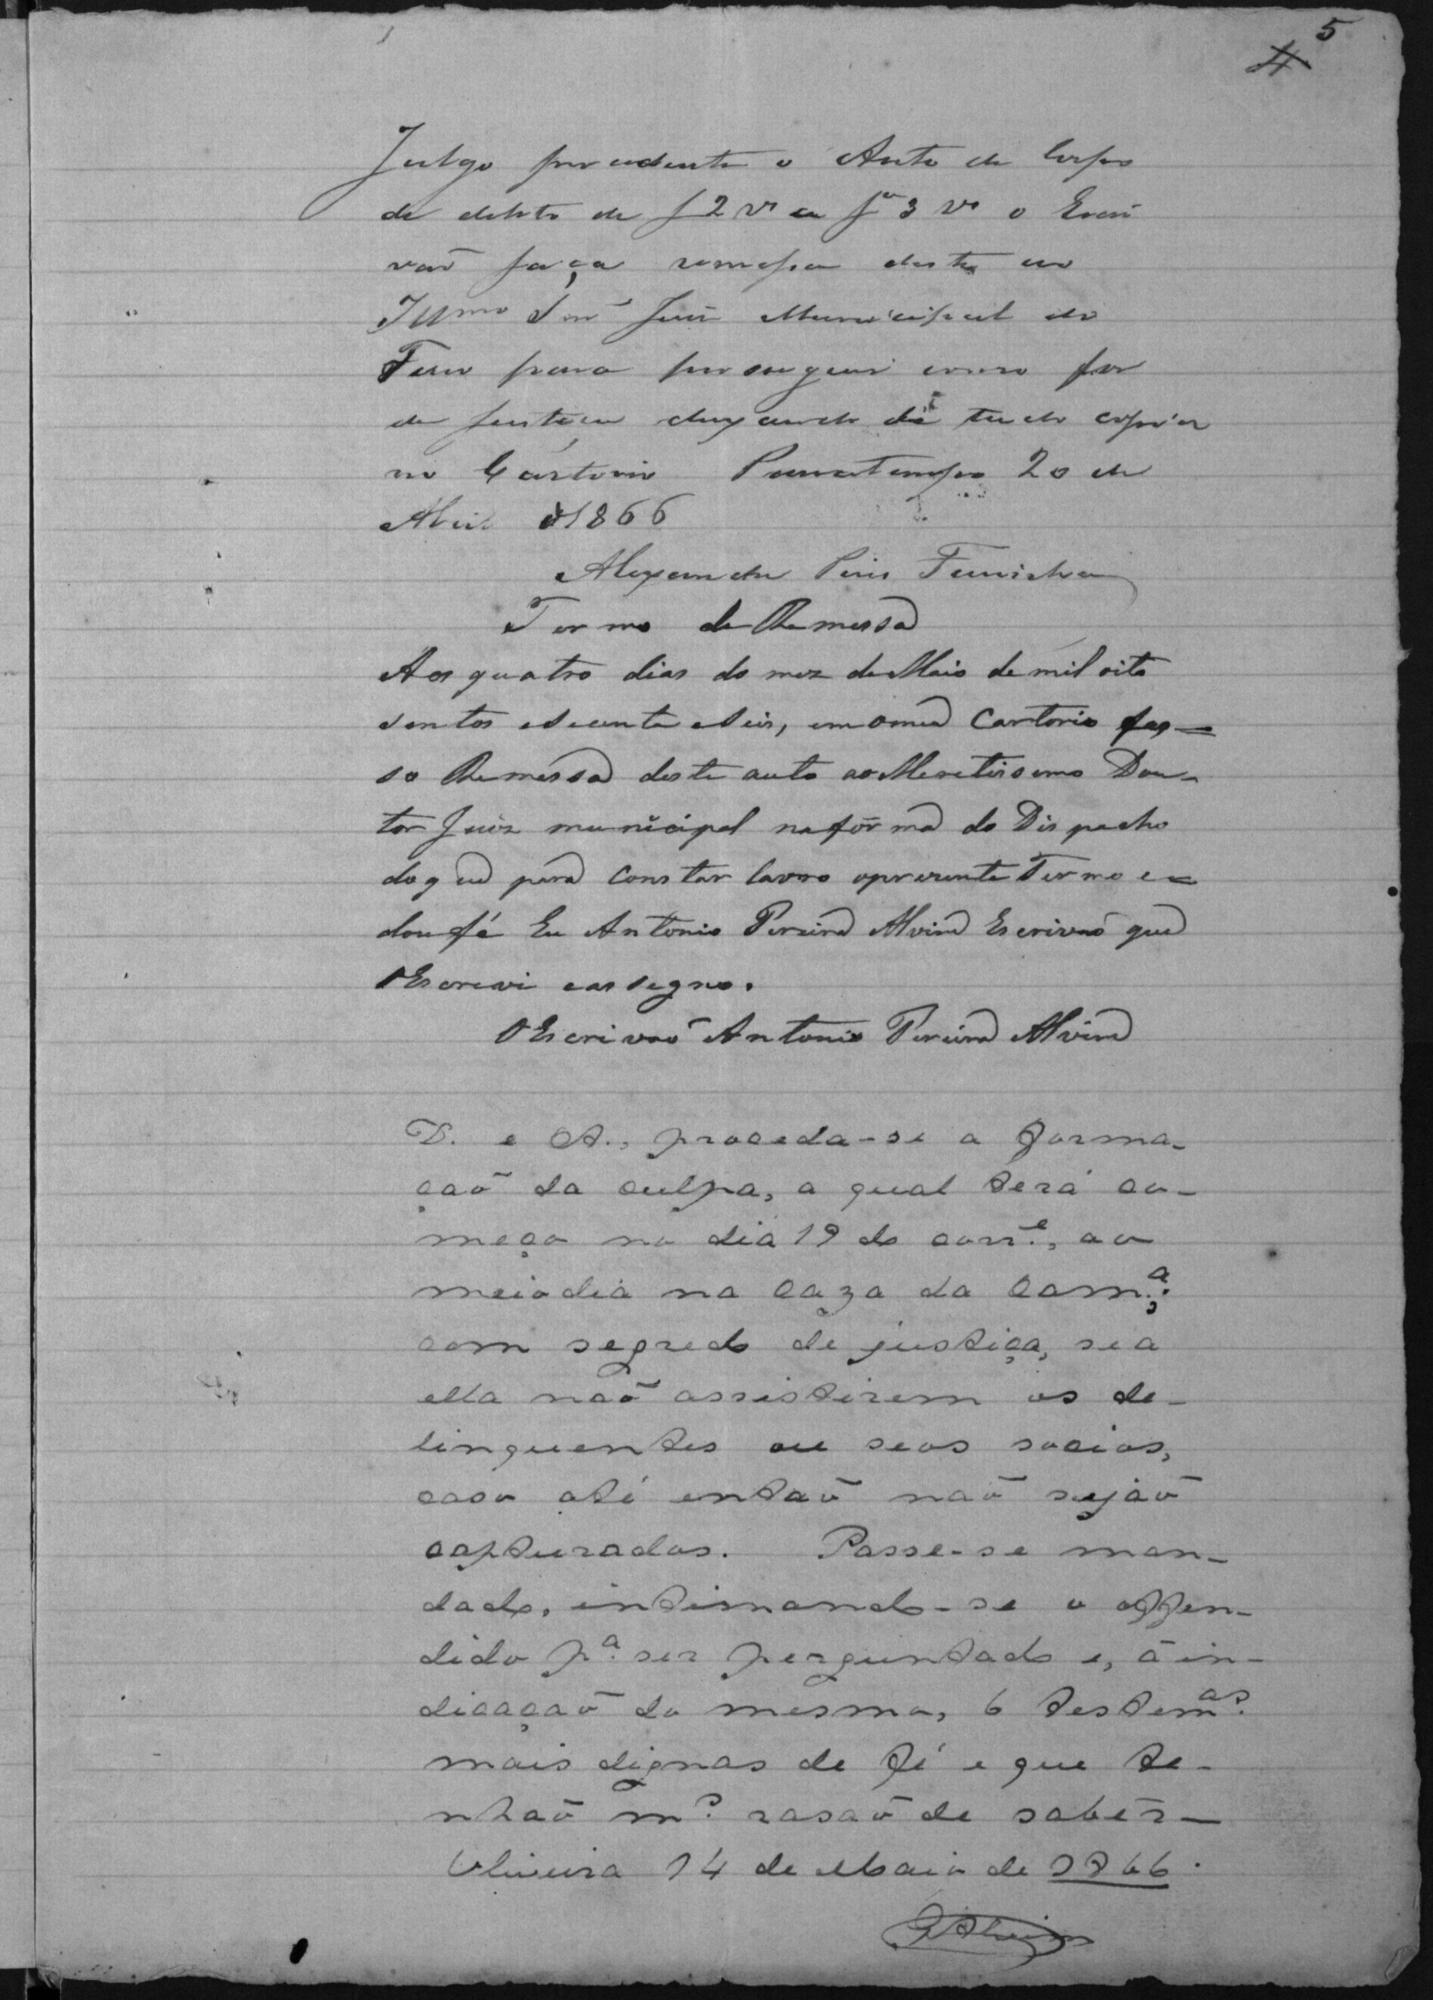 5
4
Julgo procedente o Auto de Corpo
de delito de f 2 vº a fª 3 vº o Escri
vaõ faça remessa deste ao
Illmo Snr Juiz Municipal do
Termo para proseguir como for
de justica deixando de tudo copia
no Cartorio Passatempo 20 de
Abril d 1866
Alexandre Pires
Termo de Remessa
Aos quatro dias do mez de Maio de mil oito
sentos e secenta e Seis, em o meu Cartorio fas-
so Remessa deste auto ao Meretissemo Dou-
tor Juiz municipal na fórma do Dispacho
do que para constar lavro o prezente Termo e
dou fé Eu Antonio Pereira Alvim Escrivaõ que
o Escrevi e assegno.
O Escrivaõ Antonio Pereira Alvim
D. e A., proceda-se a forma-
çaõ da culpa, a qual terá co-
meço no dia 19 do corr.e, ao
meio dia na caza da Cam.ª,
com segredo de justiça, se a
ella naõ assistirem os de-
linquentes ou seos socios,
caso até entaõ naõ sejaõ
capturados. Passe-se man-
dado, intimando-se o offen-
dido p.ª ser perguntado e, á in-
dicaçaõ do mesmo, 6 testem.as
mais dignas de fé e que te-
nhaõ m.s rasaõ de saber-
Oliveira 14 de Maio de 1866.